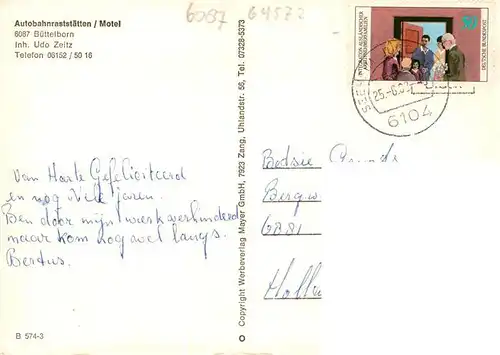 Autobahnraststätten / Motel
6087 Büttelborn
Inh. Udo Zeitz
Telefon 06152 / 50 16
6087 64572
Copyright Werbeverlag Mayer GmbH, 7923 Zang, Uhlandstr. 56, Tel. 07328-5373
INTEGRATION AUSLÄNDISCHER
ARBEITNEHMERFAMILIEN
50
DEUTSCHE BUNDESPOST
25.-6.
6104
Van Harte Gefeliciteerd
en nog Vele jaren.
Ben door mijn werk verhinderd
maar kom nog wel langs.
Bertus.
Bergw
6881
Holl
B 574-3